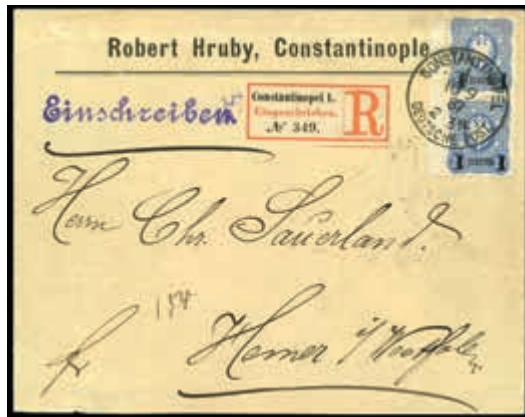 Robert Hruby, Constantinople
Einschreiben
Constantinopel 1.
Eingeschrieben.
№ 349.
R
CONSTANTINOPEL
87
DEUTSCHE POST
1
1
Herrn Chr. Sauerland.
154
Hemer i/Westfalen
fr